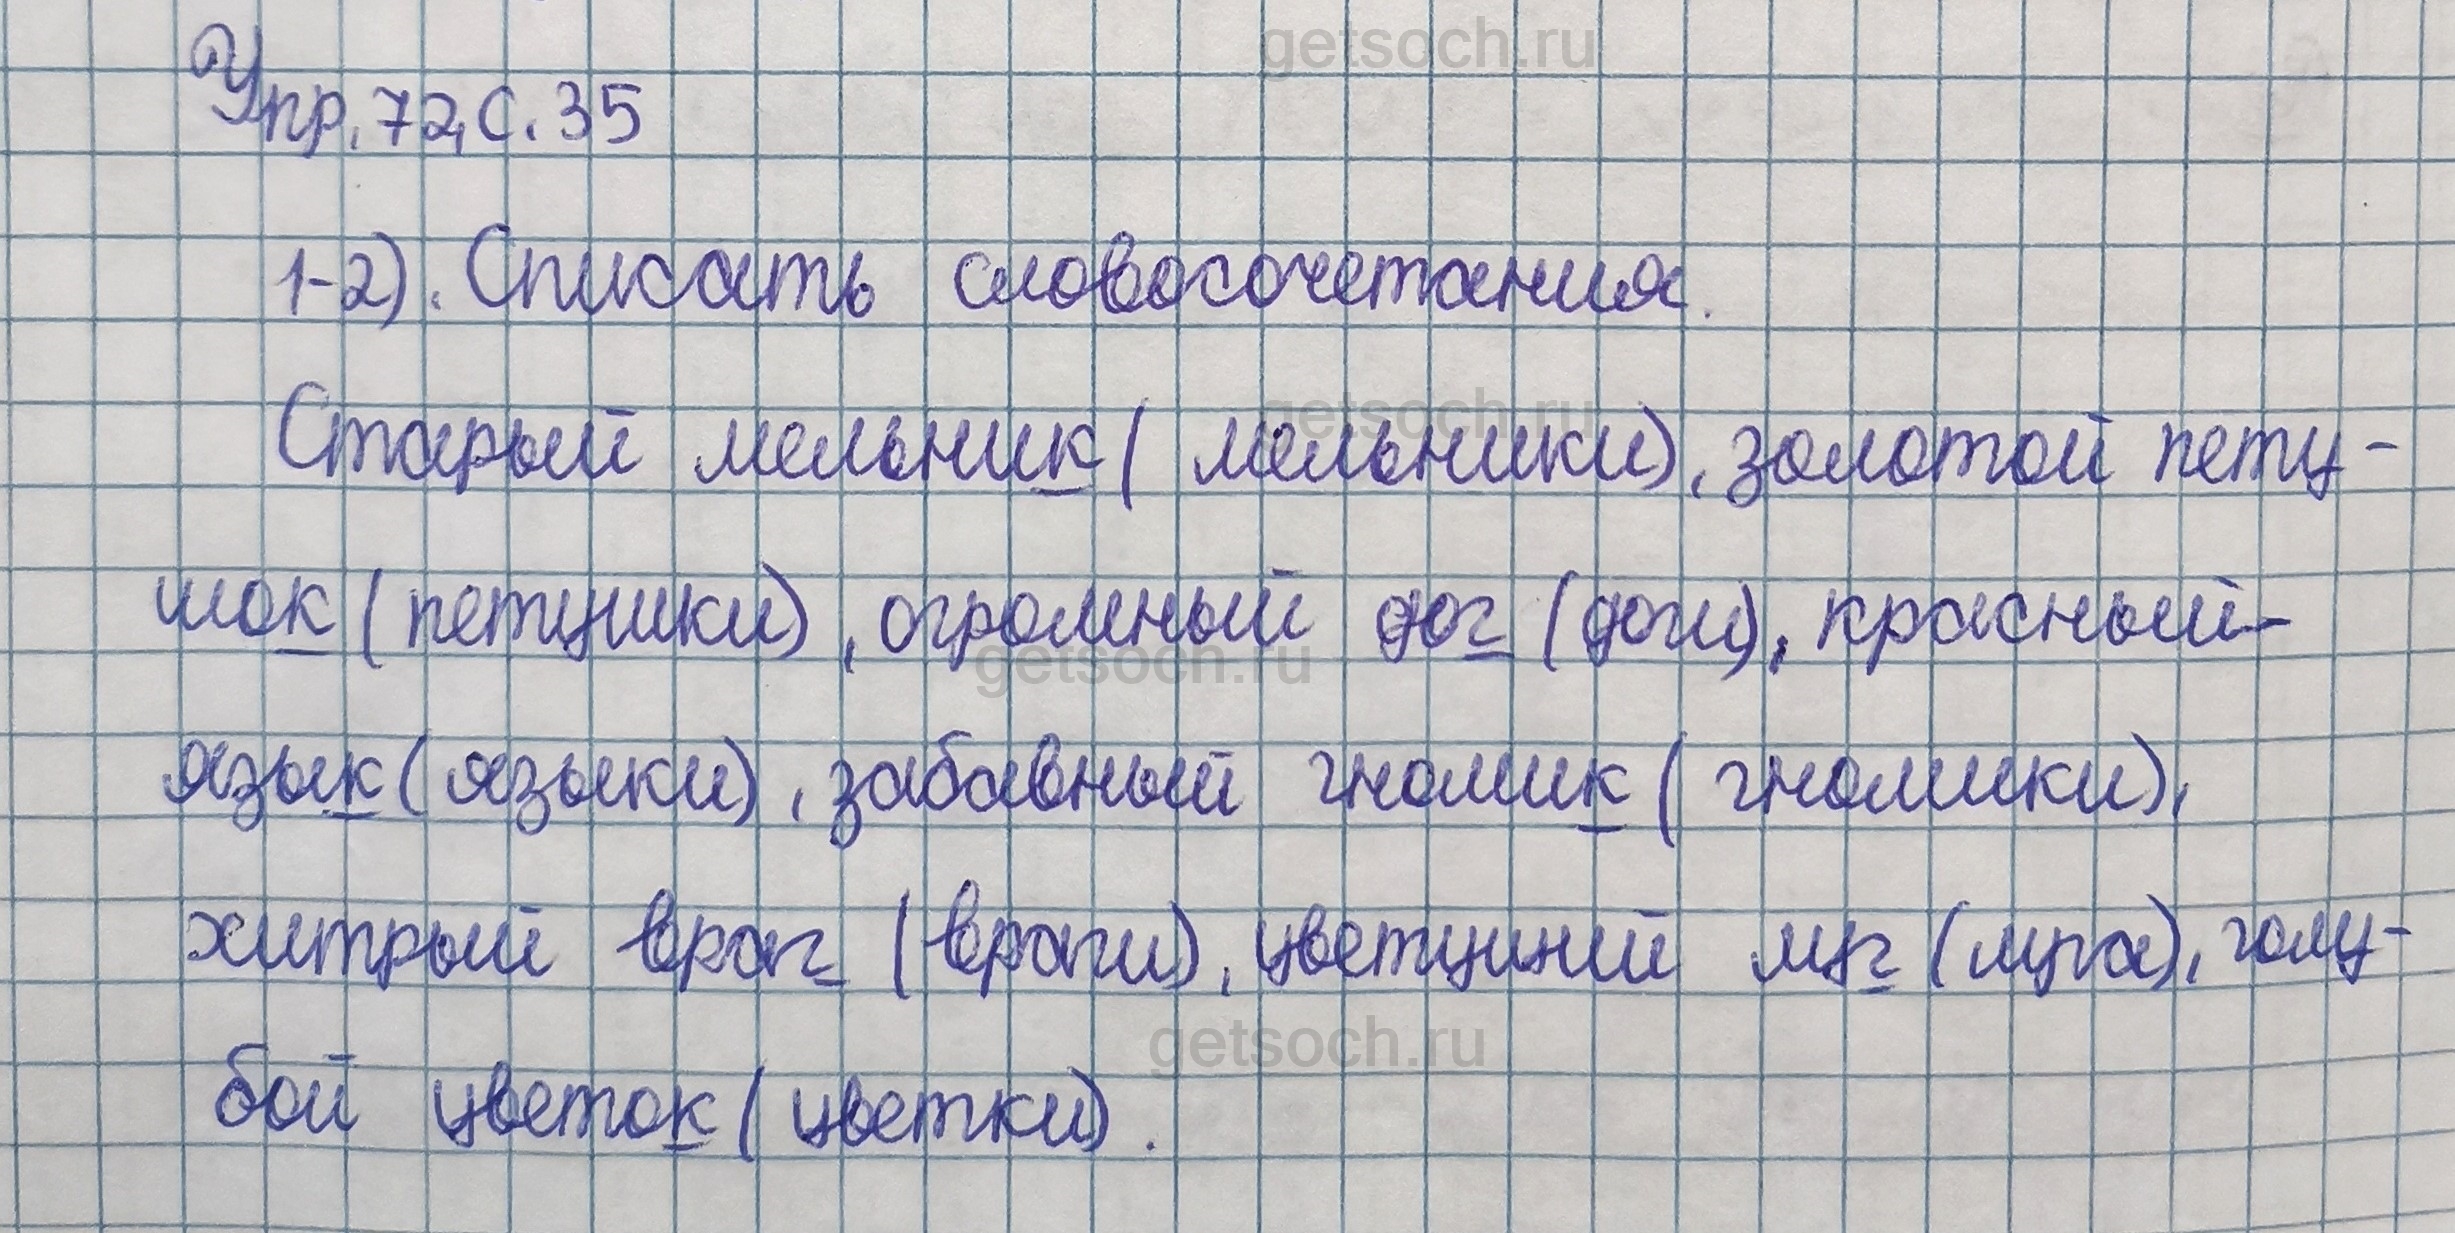 getsoch.ru
Упр. 72, с. 35
1-2). Списать словосочетания.
getsoch.ru
Старый мельник ( мельники), золотой пету-
шок (петушки), огромный дог (доги), красный-
getsoch.ru
язык (языки), забавный гномик (гномики),
хитрый враг (враги), цветущий луг (луга), голу-
getsoch.ru
бой цветок (цветки).